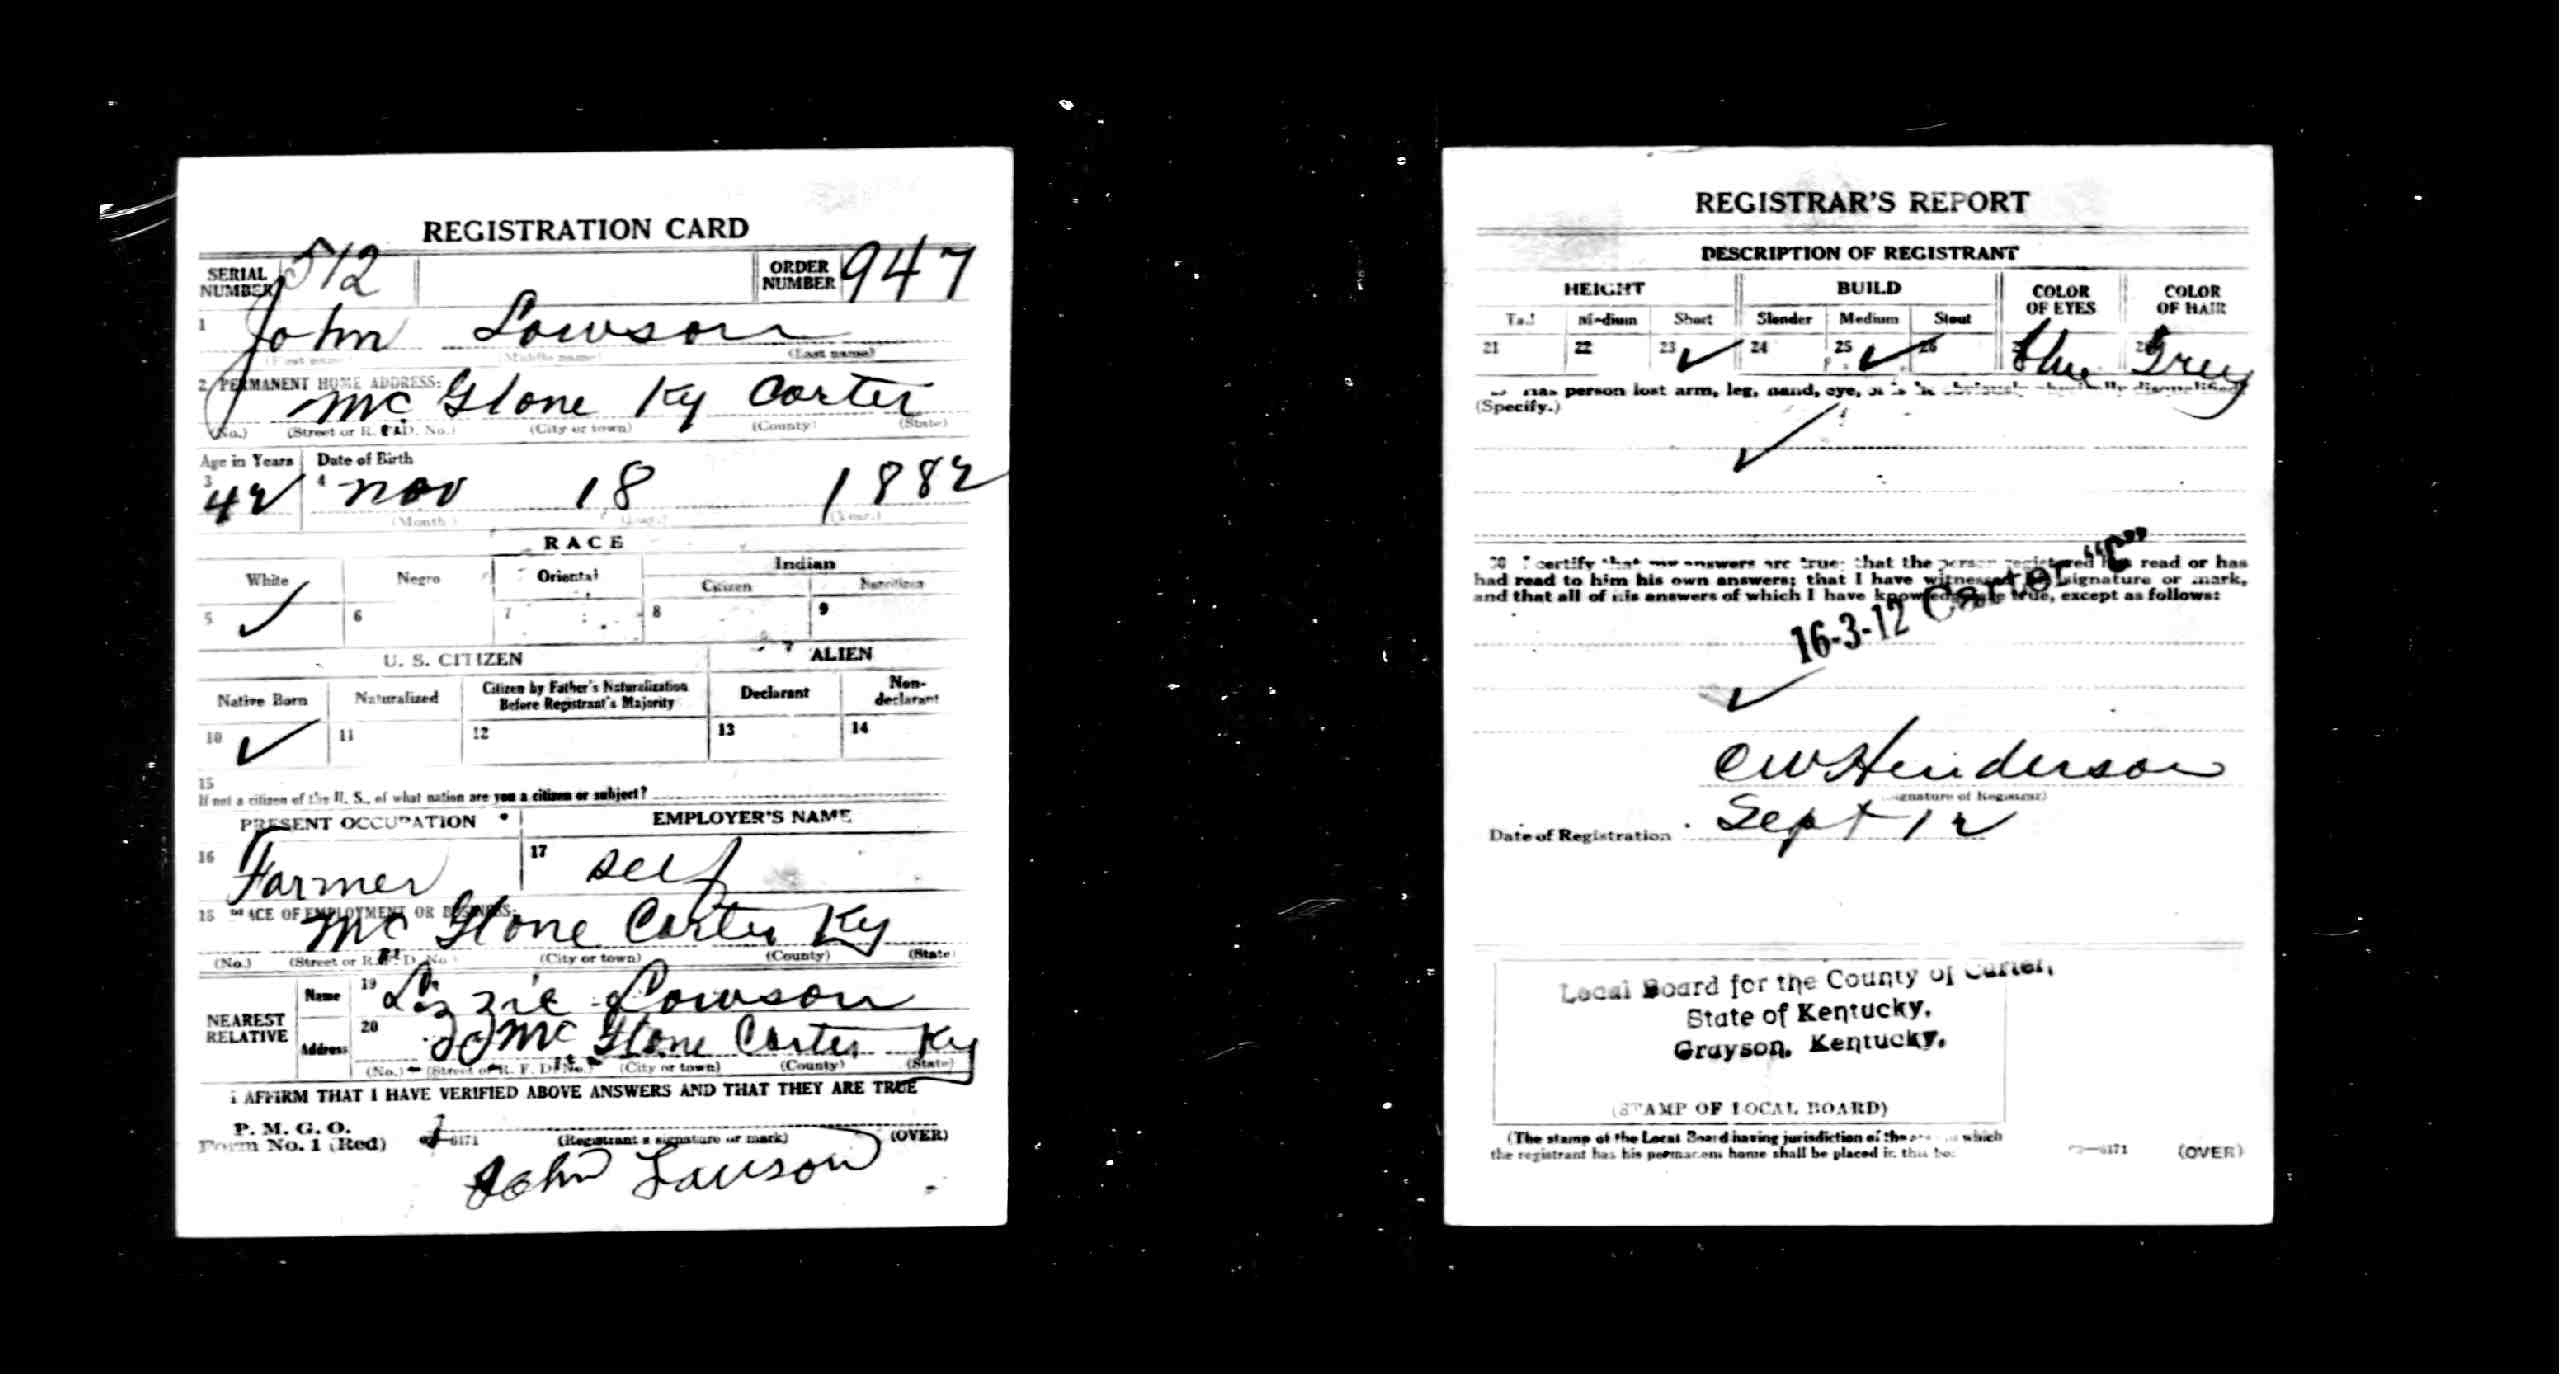 REGISTRATION CARD
SERIAL NUMBER 512
ORDER NUMBER 947
1 John Lowson
(First name) (Middle name) (Last name)
2 PERMANENT HOME ADDRESS:
Mc Glone Ky Carter
(No.) (Street or R. F. D. No.) (City or town) (County) (State)
Age in Years Date of Birth
3 42 4 Nov 18 1882
(Month) (Day.) (Year.)
RACE
White Negro Oriental Indian
Citizen Noncitizen
5 ✓ 6 7 8 9
U. S. CITIZEN ALIEN
Native Born Naturalized Citizen by Father's Naturalization Before Registrant's Majority Declarant Non-declarant
10 ✓ 11 12 13 14
15
If not a citizen of the U. S., of what nation are you a citizen or subject?
PRESENT OCCUPATION EMPLOYER'S NAME
16 Farmer 17 self
18 PLACE OF EMPLOYMENT OR BUSINESS:
Mc Glone Carter Ky
(No.) (Street or R. F. D. No.) (City or town) (County) (State)
NEAREST RELATIVE
Name 19 Lizzie Lowson
Address 20 Mc Glone Carter Ky
(No.) (Street or R. F. D. No.) (City or town) (County) (State)
I AFFIRM THAT I HAVE VERIFIED ABOVE ANSWERS AND THAT THEY ARE TRUE
P. M. G. O.
Form No. 1 (Red) 6171 (Registrant's signature or mark) (OVER)
John Lawson
REGISTRAR'S REPORT
DESCRIPTION OF REGISTRANT
HEIGHT BUILD COLOR OF EYES COLOR OF HAIR
Tall Medium Short Slender Medium Stout
21 22 23 ✓ 24 25 ✓ 26 blue Grey
Has person lost arm, leg, hand, eye,
(Specify.)
✓
30 I certify that my answers are true; that the person registered has read or has
had read to him his own answers; that I have witnessed his signature or mark,
and that all of his answers of which I have knowledge are true, except as follows:
16-3-12 Carter "C"
✓
C W Henderson
(Signature of Registrar)
Date of Registration Sept 12
Local Board for the County of Carter,
State of Kentucky,
Grayson, Kentucky.
(STAMP OF LOCAL BOARD)
(The stamp of the Local Board having jurisdiction of the area in which
the registrant has his permanent home shall be placed in this box.
6171 (OVER)